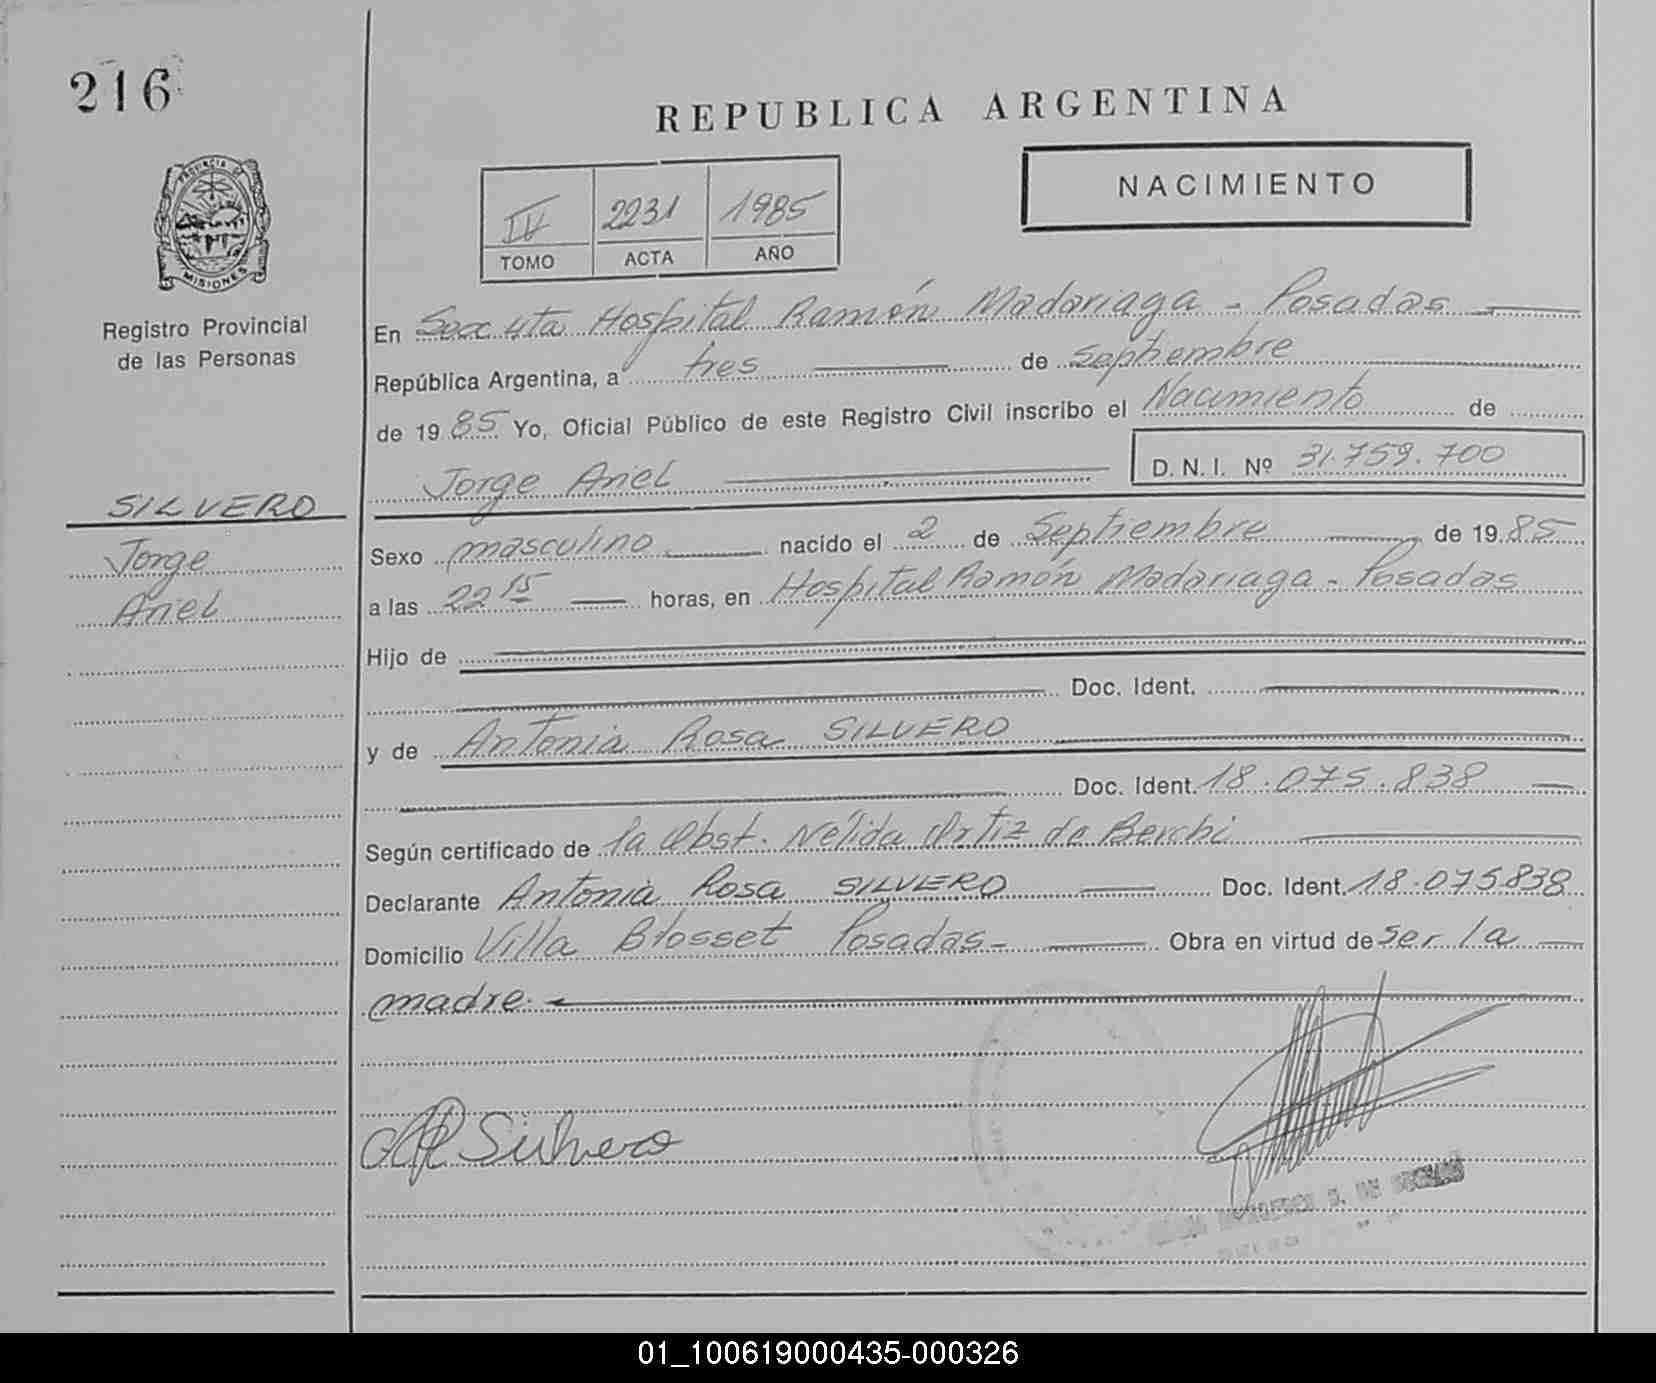 216
REPUBLICA ARGENTINA
NACIMIENTO
IV 2231 1985
TOMO ACTA AÑO
PROVINCIA DE
MISIONES
Registro Provincial
de las Personas
En Secc 4ta Hospital Ramón Madariaga - Posadas
República Argentina, a tres de Septiembre
de 19 85 Yo, Oficial Público de este Registro Civil inscribo el Nacimiento de
Jorge Ariel D. N. I. Nº 31.759.700
SILVERO
Jorge
Ariel
Sexo masculino nacido el 2 de Septiembre de 19 85
a las 22 15 horas, en Hospital Ramón Madariaga - Posadas
Hijo de
Doc. Ident.
y de Antonia Rosa SILVERO
Doc. Ident. 18.075.838
Según certificado de la Obst. Nélida Ortiz de Berchi
Declarante Antonia Rosa SILVERO Doc. Ident. 18.075838
Domicilio Villa Blosset Posadas - Obra en virtud de ser la
madre.
Silvero
01_100619000435-000326